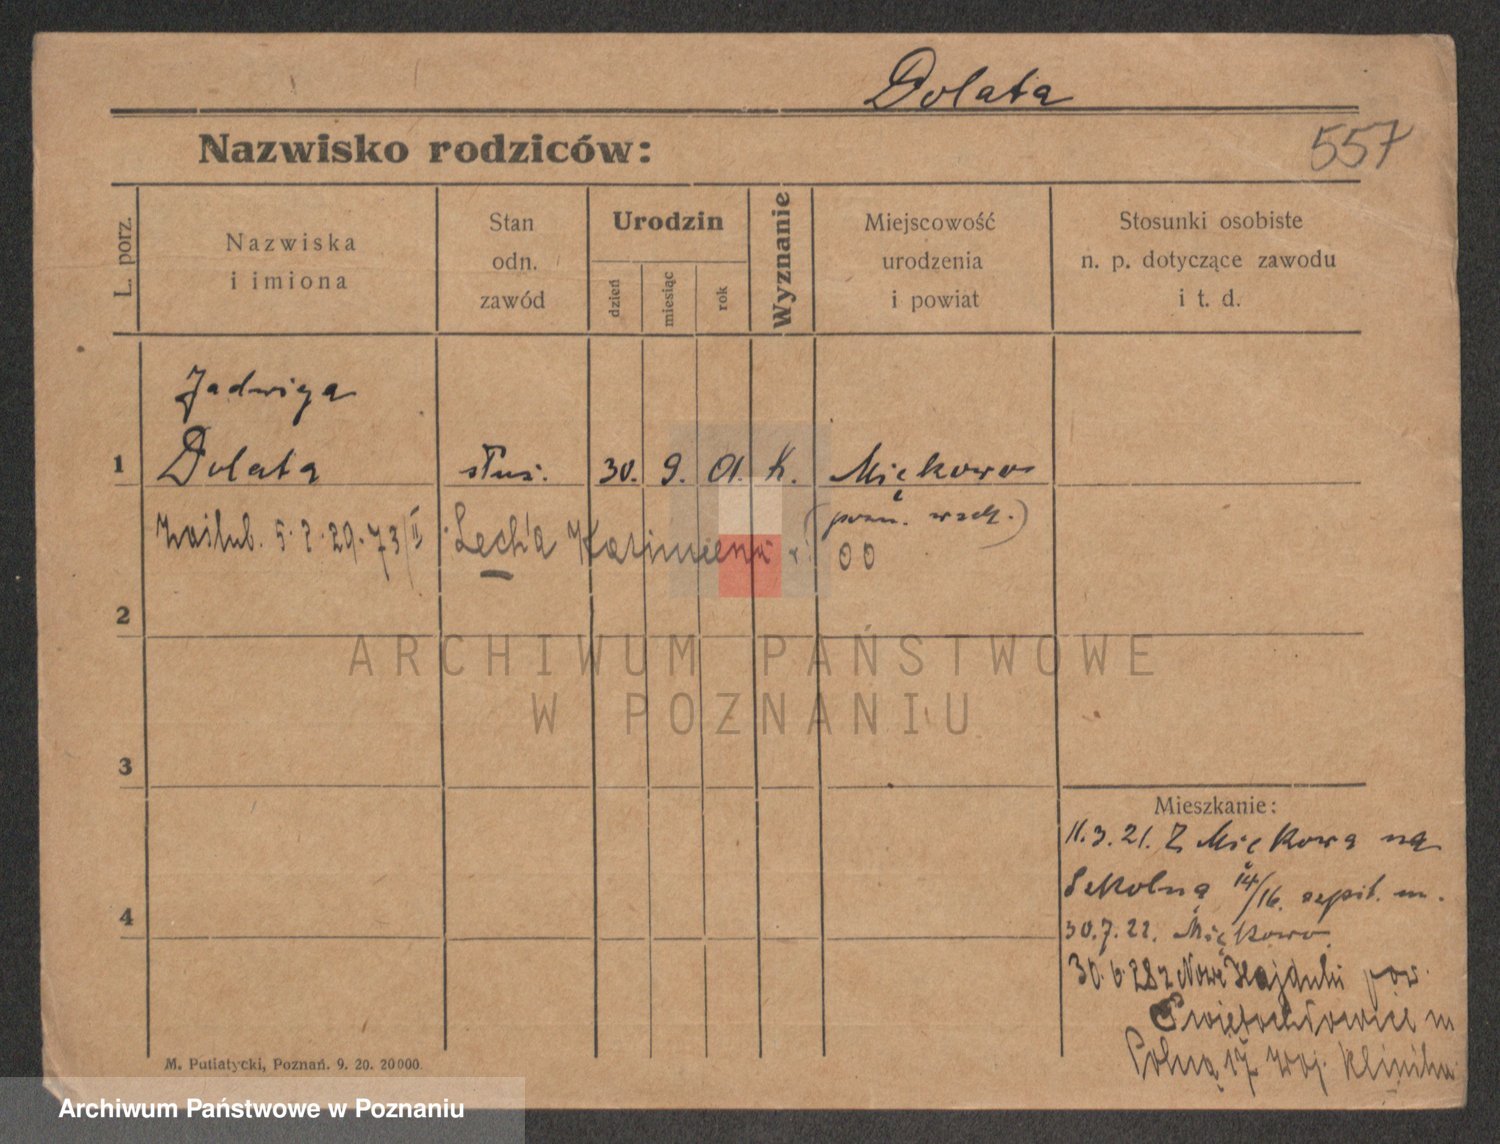 Dolata
Nazwisko rodziców:
557
L. porz.
Nazwiska
i imiona
Stan
odn.
zawód
Urodzin
dzień
miesiąc
rok
Wyznanie
Miejscowość
urodzenia
i powiat
Stosunki osobiste
n. p. dotyczące zawodu
i t. d.
Jadwiga
1 Dolata służ. 30. 9. 01. k. Miękowo
(pozn. wsch.)
Zaślub. 5. 2. 29. 73/II Lech'a Kazimierza
2
3
4
Mieszkanie:
11.3.21. Z Miękowa na
Szkolną 14/16. szpit. m.
30.7.22. Miękowo
30.6.28 z Nowe Hajduki pow.
Świętochłowice na
Polną 17 woj. klinika
M. Putiatycki, Poznań. 9. 20. 20000.
ARCHIWUM PAŃSTWOWE
W POZNANIU
Archiwum Państwowe w Poznaniu